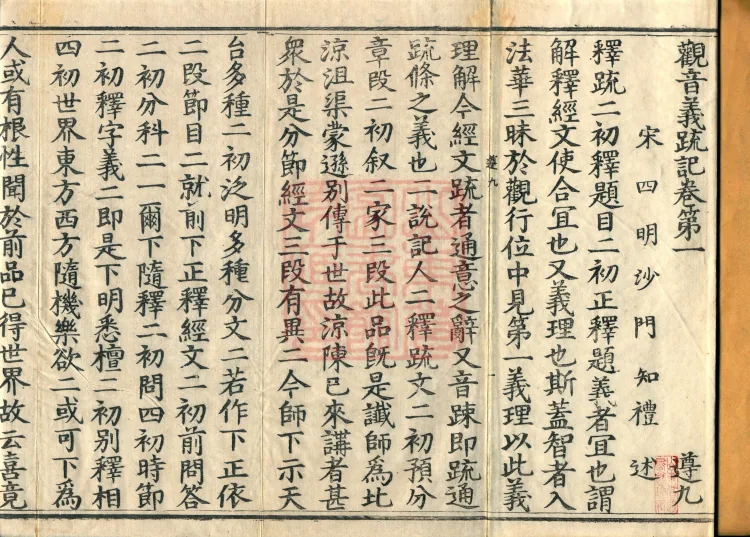 觀音義䟽記卷第一
遵九
宋四明沙門知禮述
釋䟽二初釋題目二初正釋題義者宜也謂
解釋經文使合宜也又義理也斯蓋智者入
法華三昧於觀行位中見第一義理以此義
遵九
理解今經文䟽者通意之辭又音踈即䟽通
䟽條之義也一說記人二釋䟽文二初預分
章段二初叙二家三段此品旣是讖師為北
涼沮渠蒙遜別傳于世故涼陳已來講者甚
衆於是分節經文三段有異二今師下示天
台多種二初泛明多種分文二若作下正依
二段節目二就前下正釋經文二初前問答
二初分科二一爾下隨釋二初問四初時節
二初釋字義二即是下明悉檀二初別釋相
四初世界東方西方隨機樂欲二或可下為
人或有根性聞於前品已得世界故云喜竟